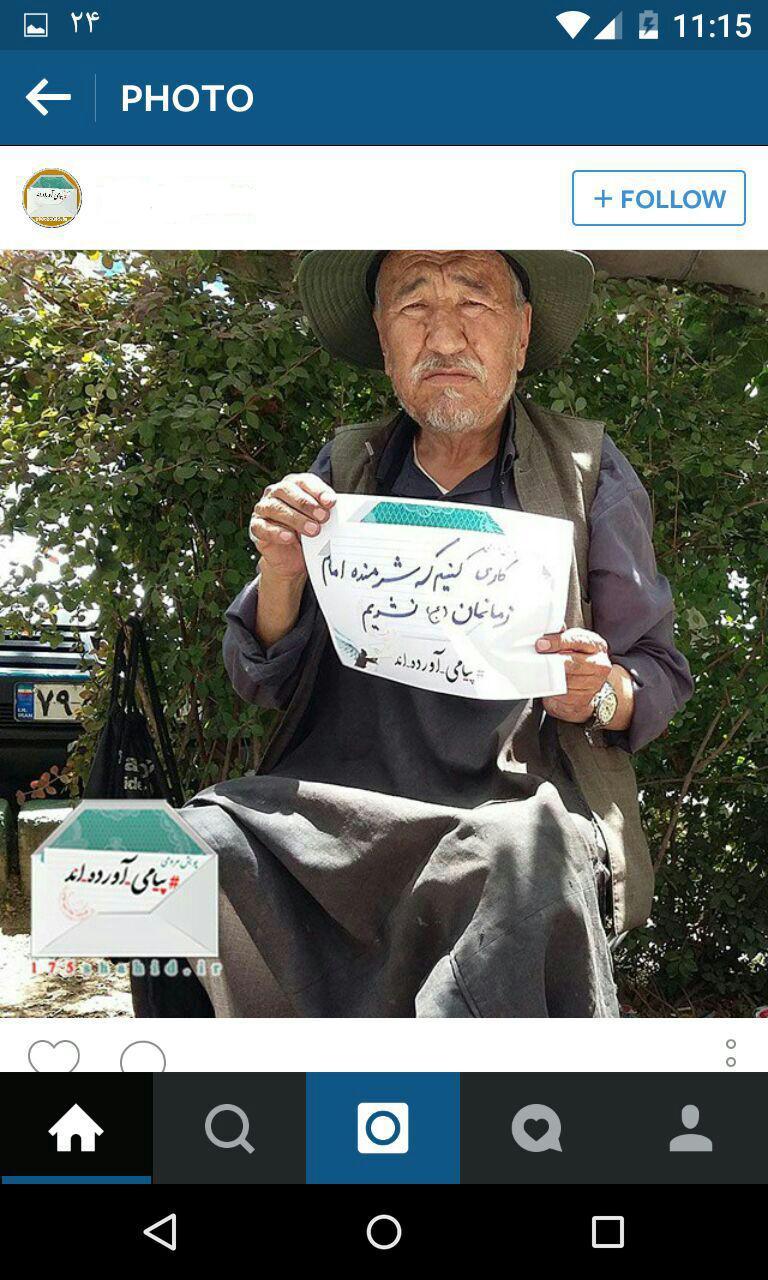 ۲۴ 11:15
PHOTO
+ FOLLOW
کاری کنیم که شرمنده امام
زمانمان (عج) نشویم
#پیامی_آورده_اند
۷۹
I.R.
IRAN
#پیامی_آورده_اند
175shahid.ir